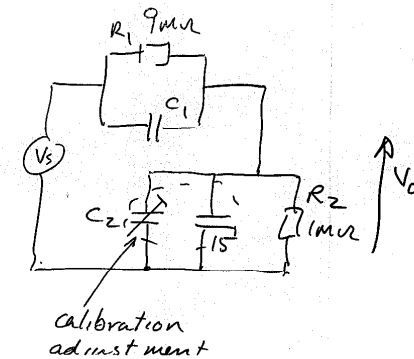 R1 9MΩ
C1
Vs
C2
15
R2
1MΩ
Vo
calibration
adjustment